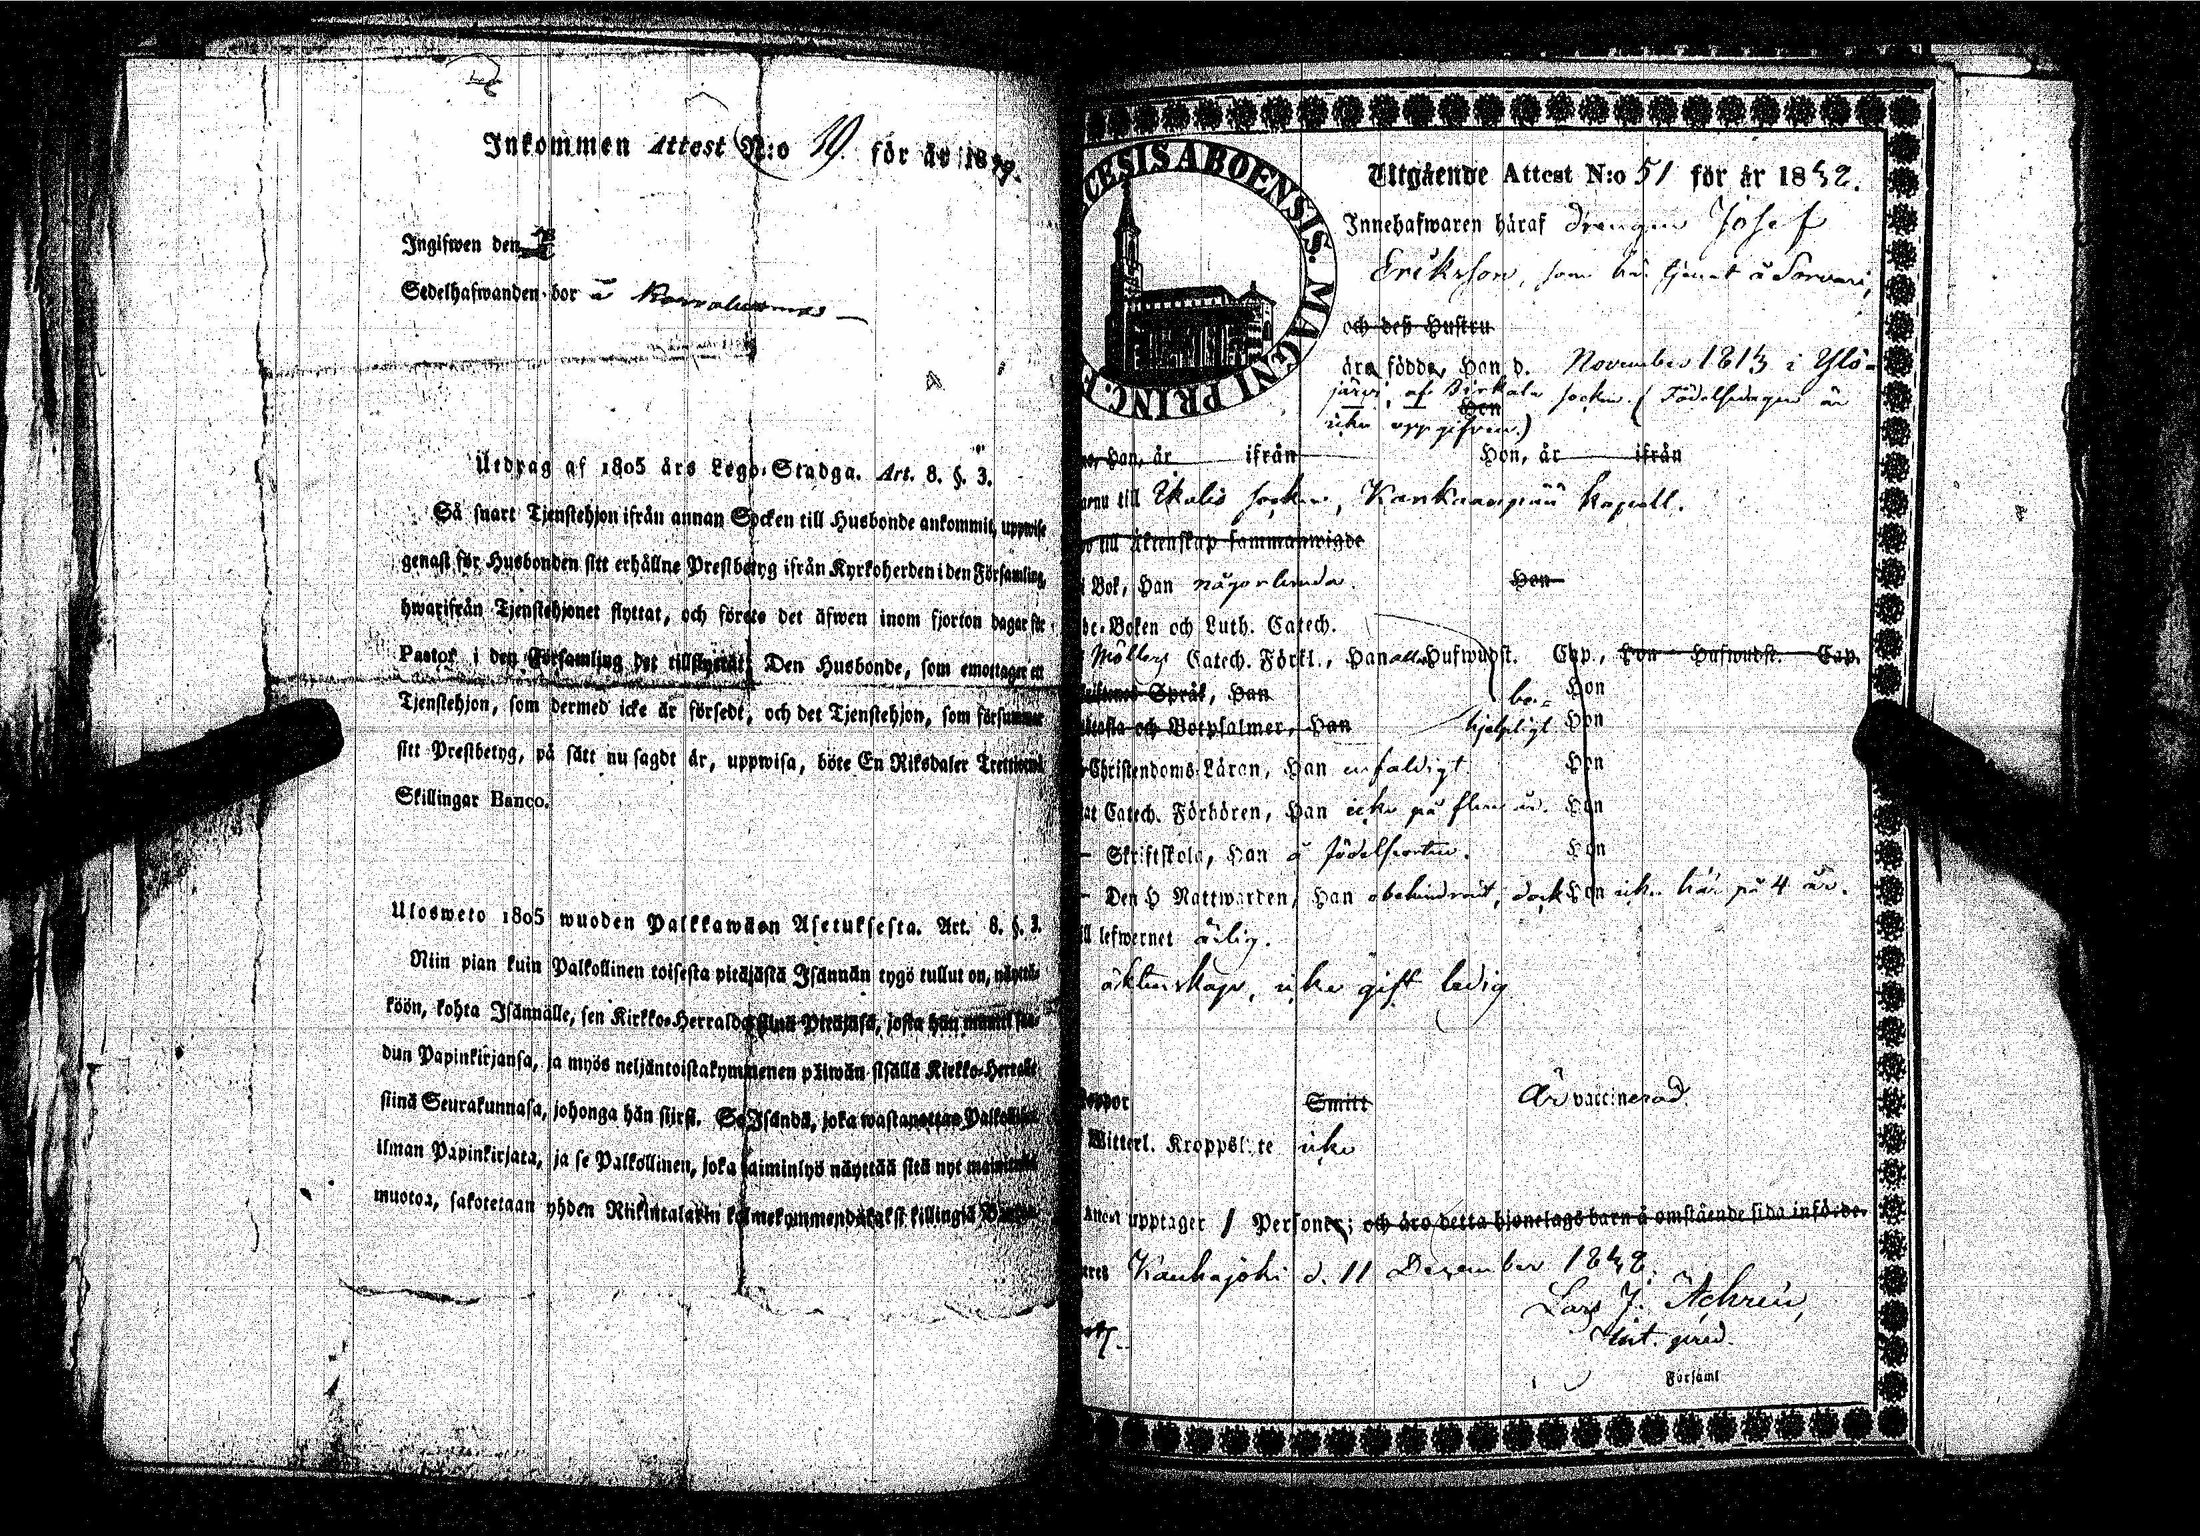 Inkommen Attest N:o 19. för år 1849.
Ingifwen den
Sedelhafwanden bor å
Utdrag af 1805 års Lego-Stadga. Art. 8. §. 3.
Så snart Tjenstehjon ifrån annan Socken till Husbonde ankommit, uppwise
genast för Husbonden sitt erhållne Prestbetyg ifrån Kyrkoherden i den Församling,
hwarifrån Tjenstehjonet flyttat, och förete det äfwen inom fjorton dagar för
Pastor i den Församling det tillflyttat. Den Husbonde, som emottager ett
Tjenstehjon, som dermed icke är försedt, och det Tjenstehjon, som försummar
sitt Prestbetyg, på sätt nu sagdt är, uppwisa, böte En Riksdaler Trettiotwå
Skillingar Banco.
Ulosweto 1805 wuoden Palkkawäen Asetuksesta. Art. 8. §. 3.
Niin pian kuin Palkollinen toisesta pitäjästä Isännän tygö tullut on, näyttä-
köön, kohta Isännälle, sen Kirkko-Herralda siinä Pitäjäsä, josta hän muutti saa-
dun Papinkirjansa, ja myös neljäntoistakymmenen päiwän sisällä Kirkko-Herralle
siinä Seurakunnasa, johonga hän siirsi. Se Isändä, joka wastanottaa Palkollisen
ilman Papinkirjata, ja se Palkollinen, joka laiminlyö näyttää sitä nyt mainitulla
muotoa, sakotetaan yhden Riikintalarin kolmekymmendäkaksi killingiä Bancoa.
ŒCESIS ABOENSIS. MAGNI PRINC. F
Utgående Attest N:o 51 för år 1842.
Innehafwaren häraf drängen Josef
Eriksson, som här tjenat å Sorvari,
och deß Hustru
äro födde, Han d. November 1813 i Ylö-
järvi, af Birkala socken. (Födelsedagen är
Hon
icke uppgifven.)
Han, år ifrån Hon, år ifrån
till Ikalis socken, Kankaanpää kapell.
till äktenskap sammanwigde
Bok, Han någorlunda. Hon
Boken och Luth. Catech.
Möllers Catech. Förkl., Han alla Hufwudst. Cap., Hon Hufwudst. Cap.
Språk, Han be- Hon
och Botpsalmer, Han hjelpligt Hon
Christendoms-Läran, Han enfaldigt Hon
Catech. Förhören, Han icke på flera år. Hon
Skriftskola, Han å födelseorten. Hon
Den H Nattwarden, Han obehindrat, dock Hon icke här på 4 år.
lefwernet ärlig.
äktenskap, icke gift ledig
Koppor Smitt Är vaccinerad.
Witterl. Kroppslyte icke
upptager 1 Personer; och äro detta hjonelags barn å omstående sida införde.
Kauhajoki d. 11 December 1842.
Lars J. Achrén,
pred.
Församl